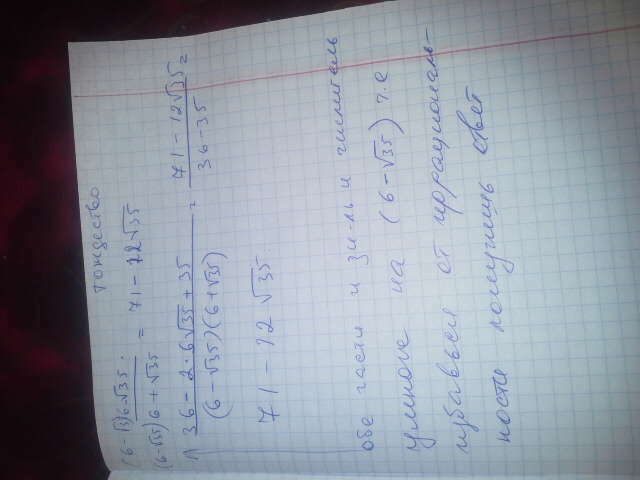 тождество
(6-√3)6-√35 / (6-√35)6+√35 = 71-12√35
36-2·6√35+35 / (6-√35)(6+√35) = 71-12√35 / 36-35 =
71-12√35
обе части и зн-ль и числитель
умножь на (6-√35) т.е
избавься от иррациональ-
ности получишь ответ